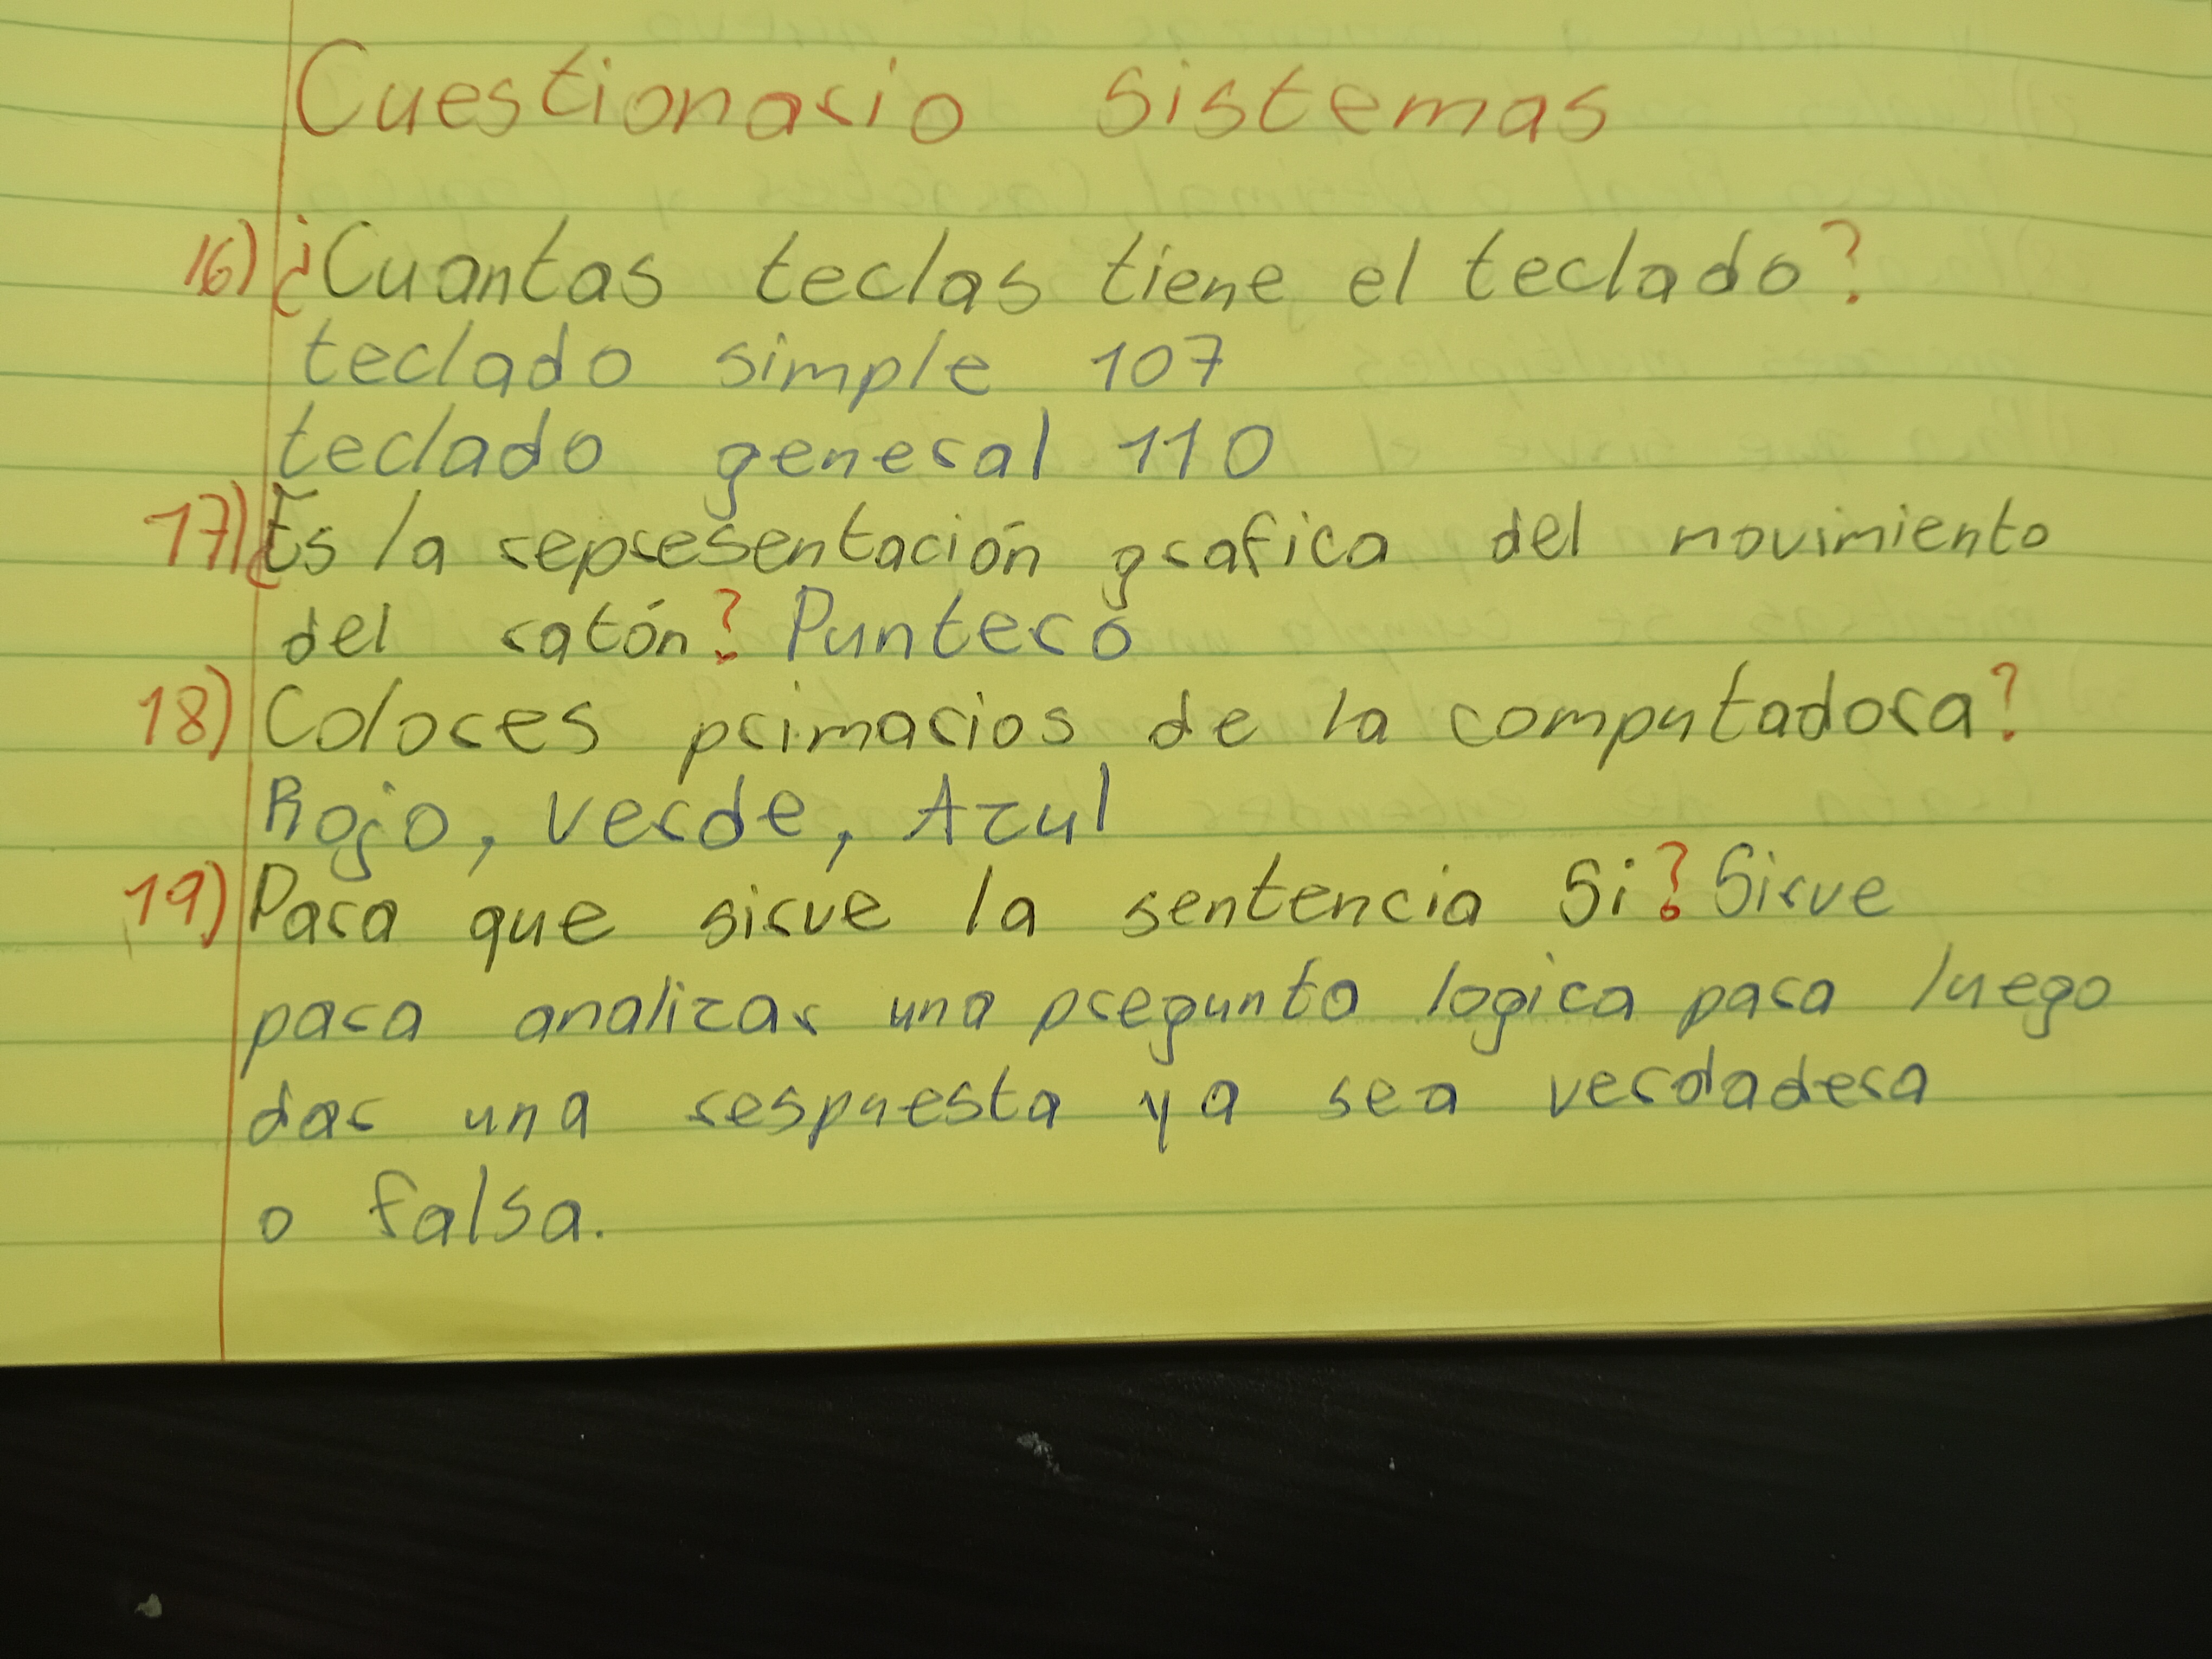 Cuestionario sistemas
16) ¿Cuantas teclas tiene el teclado?
teclado simple 107
teclado general 110
17) ¿Es la representación grafica del movimiento
del ratón? Puntero
18) Colores primarios de la computadora?
Rojo, verde, Azul
19) Para que sirve la sentencia Si? Sirve
para analizar una pregunta logica para luego
dar una respuesta ya sea verdadera
o falsa.